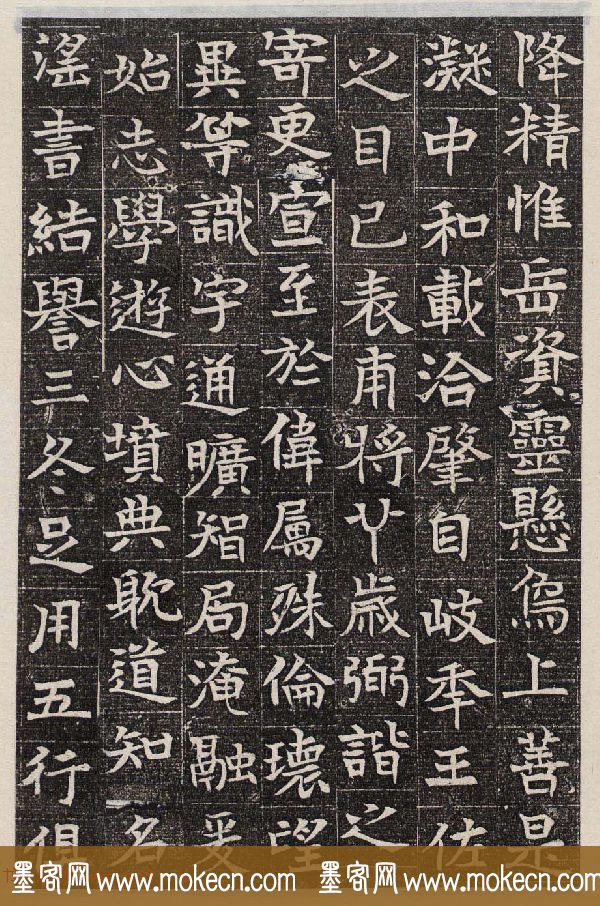 降精惟岳資靈懸上善是
凝中和載洽肇自岐秊王佐
之目已表甫將丱歲弼諧之
寄更宣至於偉屬殊倫瓌望
異等識宇通曠智局淹融爰
始志學遊心墳典耽道知名
滛書結譽三冬足用五行俱
墨客网 www.mokecn.com 墨客网 www.mokecn.com 墨客网 www.mokecn.com